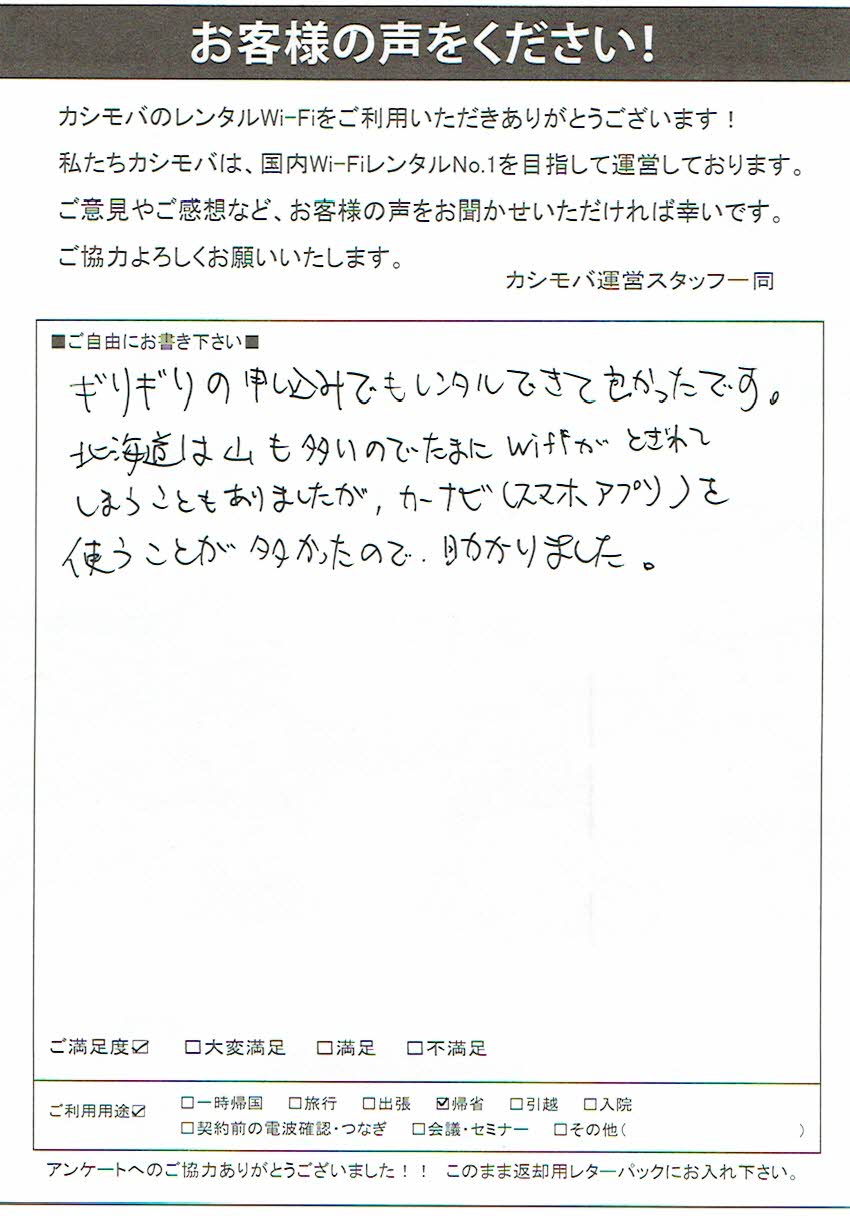 お客様の声をください!
カシモバのレンタルWi-Fiをご利用いただきありがとうございます!
私たちカシモバは、国内Wi-FiレンタルNo.1を目指して運営しております。
ご意見やご感想など、お客様の声をお聞かせいただければ幸いです。
ご協力よろしくお願いいたします。
カシモバ運営スタッフ一同
■ご自由にお書き下さい■
ギリギリの申し込みでもレンタルできて良かったです。
北海道は山も多いのでたまにWifiがとぎれて
しまうこともありましたが, カーナビ(スマホアプリ)を
使うことが多かったので、助かりました。
ご満足度☑ □大変満足 □満足 □不満足
ご利用用途☑ □一時帰国 □旅行 □出張 ☑帰省 □引越 □入院
□契約前の電波確認・つなぎ □会議・セミナー □その他( )
アンケートへのご協力ありがとうございました!! このまま返却用レターパックにお入れ下さい。